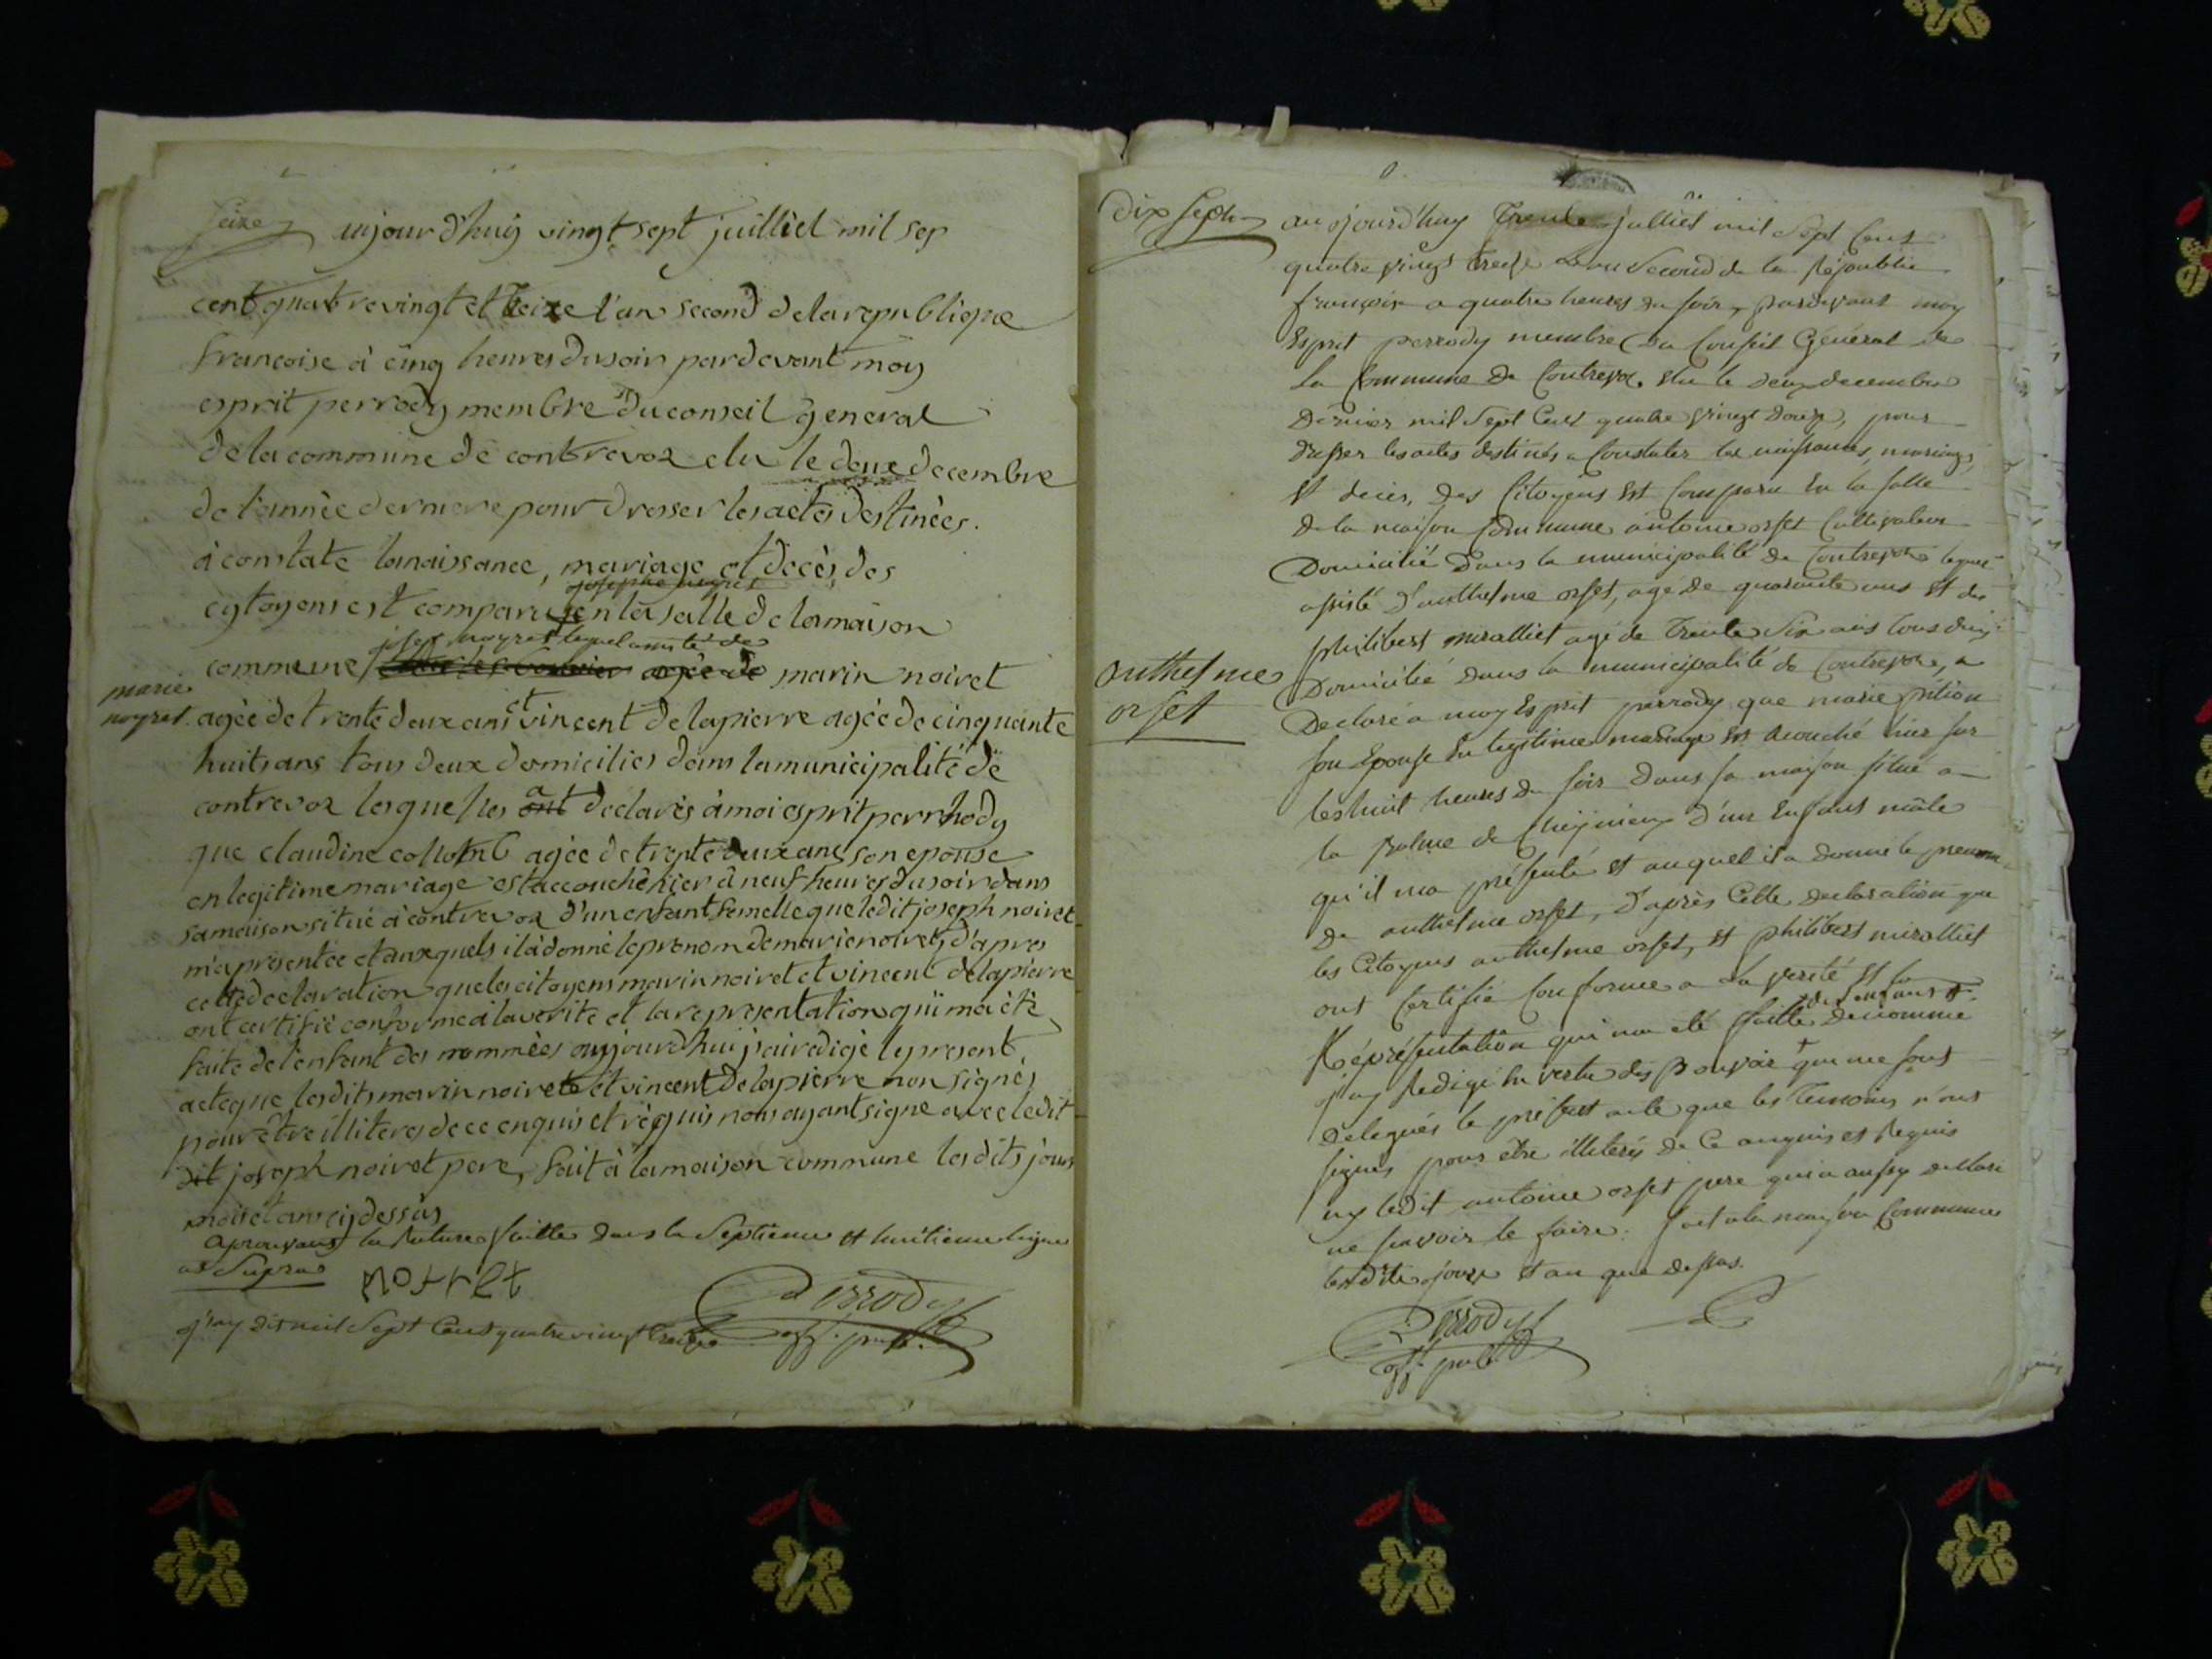 seize
aujourdhuy vingt sept juilliet mil sep
cent quatrevingt et treize l'an second dela republique
francoise à cinq heures du soir pardevant moy
esprit perrody membre du conseil general
de la commune de contrevoz elu le deux decembre
de l'année derniere pour dresser les actes destinées
à constate la naissance, mariage et decès, des
josephe noyret
cytoyens est comparu en la salle de la maison
josep noyret lequel assisté de
commune agée de marin noiret
marie
noyret
agée de trente deux ans et vincent delapierre agée de cinquante
huit ans tous deux domicilies dans la municipalité de
contrevoz lesquelles ont a declarés à moi esprit perrhody
que claudine agée de trente deux ans son epouse
en legitime mariage est accouchè hier à neuf heures du soir dans
sa maison situé à contrevoz d'un enfant femelle que ledit joseph noiret
m'a présentée et auxquels il à donné le prenom de marie noiret, d'apres
cette declaration que les citoyens marin noiret et vincent delapierre
ont certifié conforme à la verite et la representation qui ma été
faite de l'enfant des nommées aujourdhui j'ai redigè le present
acte que lesdits marin noirete et vincent delapierre non signés
pour être illiteres de ce enquis et requis nous ayant signe avec ledit
dit joseph noiret pere, fait à la maison commune les dits jours
mois et an cy dessus
aprouvant la rature faitte dans la septieme et huitieme ligne
us supra
NOIRET
j'ay dit mil sept cent quatre vingt treize
Perrody
off. publ.
Dix sept
aujourd'huy trente julliet mil sept cent
quatre vingt treize l'an second de la République
françoise a quatre heures du soir, pardevant moy
Esprit perrody membre du Conseil Général de
La Commune de Contrevoz, elu le deux decembre
dernier mil sept cent quatre vingt douze, pour
dresser les actes destinés a Constater les naissances, mariages,
et deces, des Citoyens est Comparu en la salle
de la maison Commune antoine orset Cultivateur
Domicilié dans la municipalité de Contrevoz lequel
assisté d'anthelme orset, age de quarante ans et de
philibert miralliet agé de trente six ans tous deux
Domicilié dans la municipalité de Contrevoz, a
anthelme
orset
Declaré a moy Esprit perrody que marie
son Epouse en legitime mariage est acouché hier sur
les huit heures du soir dans sa maison situé a
la palme de d'un Enfans mâle
qu'il ma présenté et auquel il a donné le prenom
de anthelme orset, d'après Cette declaration que
les Citoyens anthelme orset, et philibert miralliet
ont Certifié Conforme a la verité et la
Répresentation qui ma eté faitte de l'enfans denommé
j'ay redigé en vertu des pouvoir qui me sont
delegués le présent acte que les temoins n'ont
signés pour être illiterés de Ce enquis et requis
ny ledit antoine orset pere qui a aussy declaré
ne savoir le faire. fait a la maison Commune
lesdits jours et an que dessus.
Perrody
off. publ.